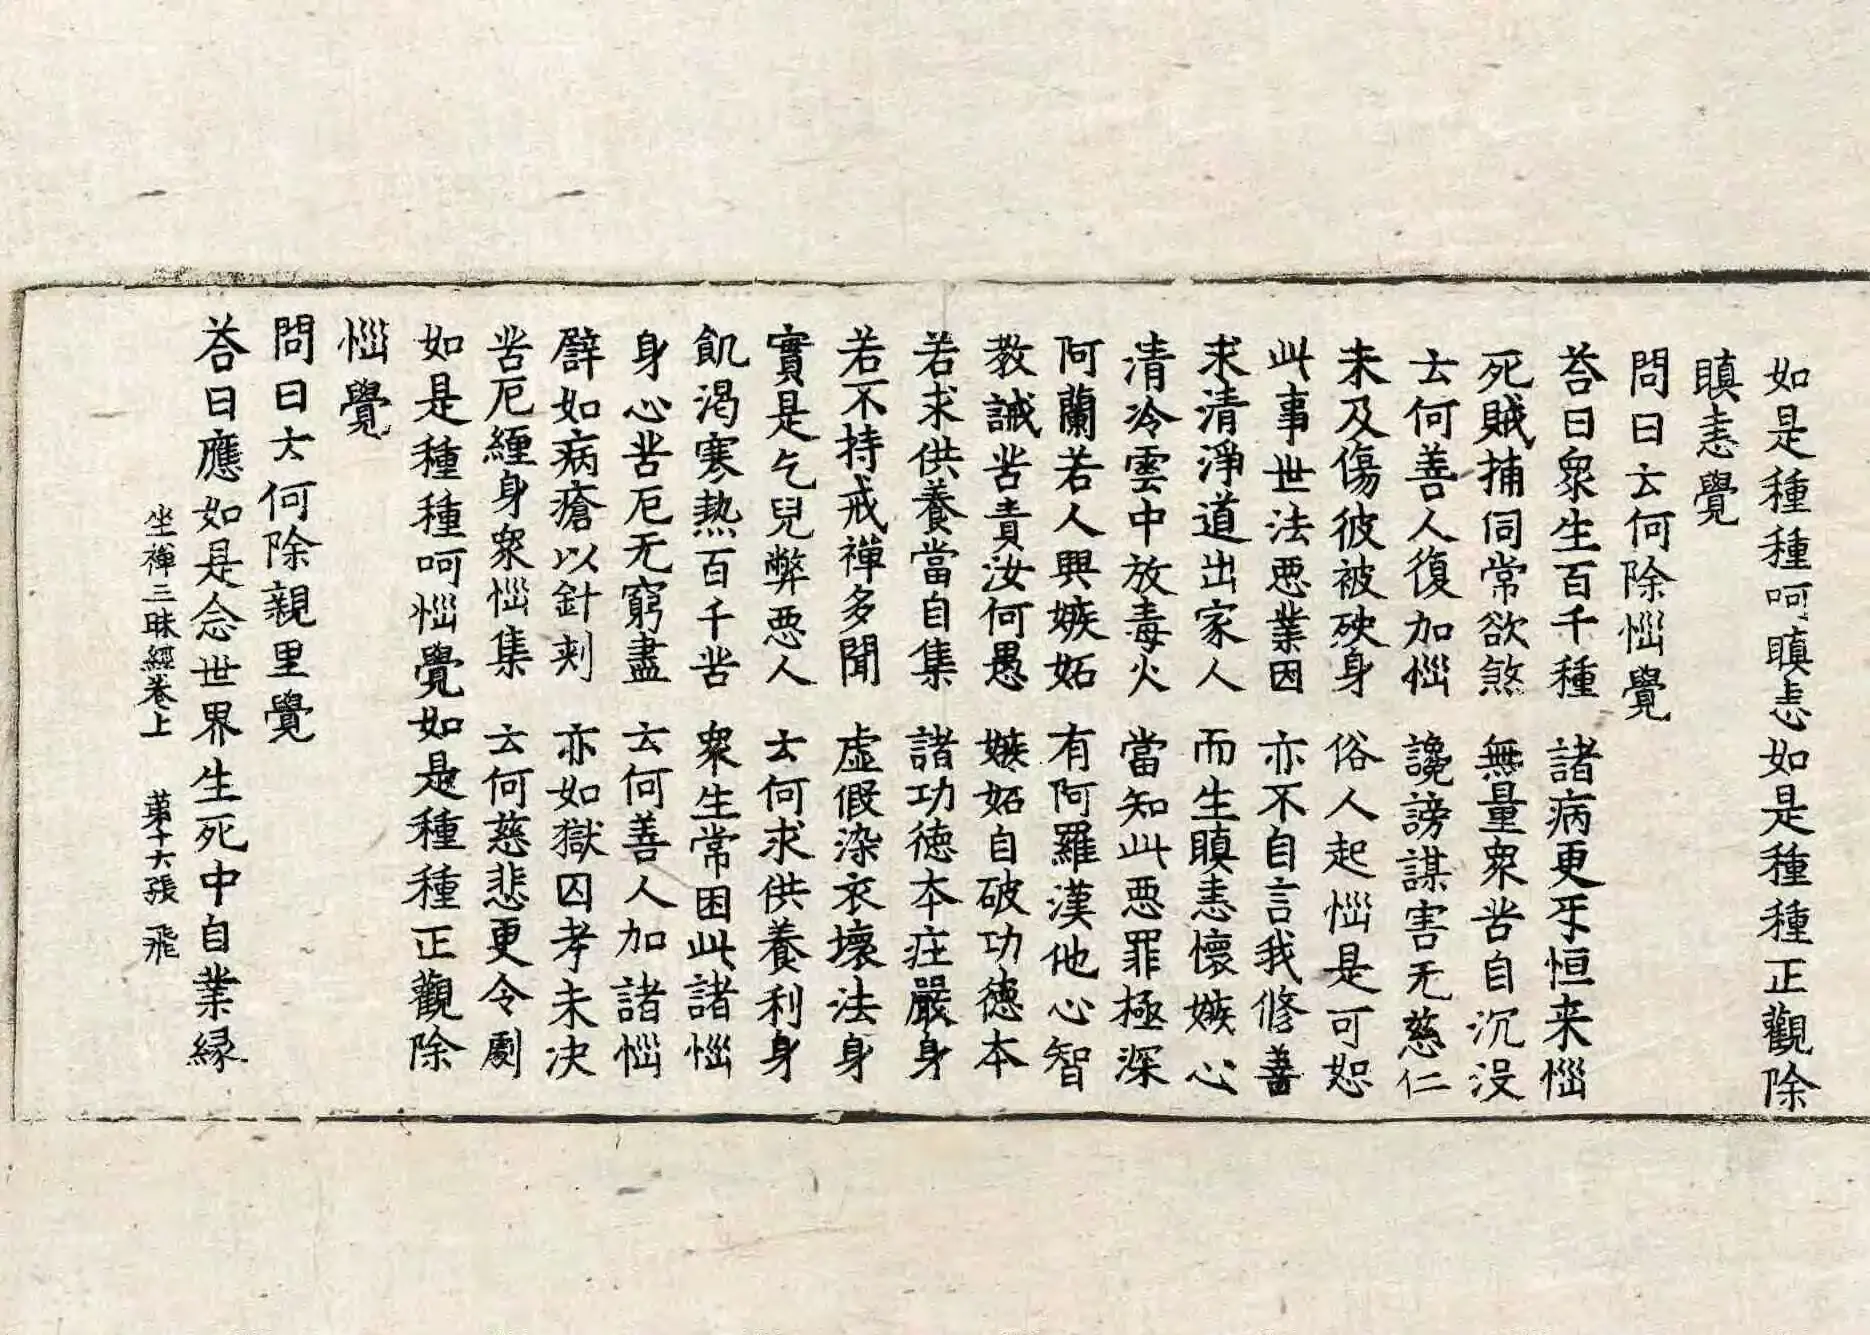 如是種種呵瞋恚如是種種正觀除
瞋恚覺
問曰云何除惱覺
荅曰衆生百千種 諸病更牙恒来惱
死賊捕伺常欲煞 無量衆苦自沉没
云何善人復加惱 讒謗謀害无慈仁
未及傷彼被殃身 俗人起惱是可恕
此事世法惡業因 亦不自言我修善
求清淨道出家人 而生瞋恚懷嫉心
清冷雲中放毒火 當知此惡罪極深
阿蘭若人興嫉妬 有阿羅漢他心智
教誡苦責汝何愚 嫉妬自破功德本
若求供養當自集 諸功德本庄嚴身
若不持戒禪多聞 虛假染衣壞法身
實是乞兒弊惡人 云何求供養利身
飢渴寒熱百千苦 衆生常困此諸惱
身心苦厄无窮盡 云何善人加諸惱
譬如病瘡以針刾 亦如獄囚考未决
苦厄纏身衆惱集 云何慈悲更令劇
如是種種呵惱覺如是種種正觀除
惱覺
問曰云何除親里覺
荅曰應如是念世界生死中自業緣
坐禪三昧經卷上 第十六張 飛